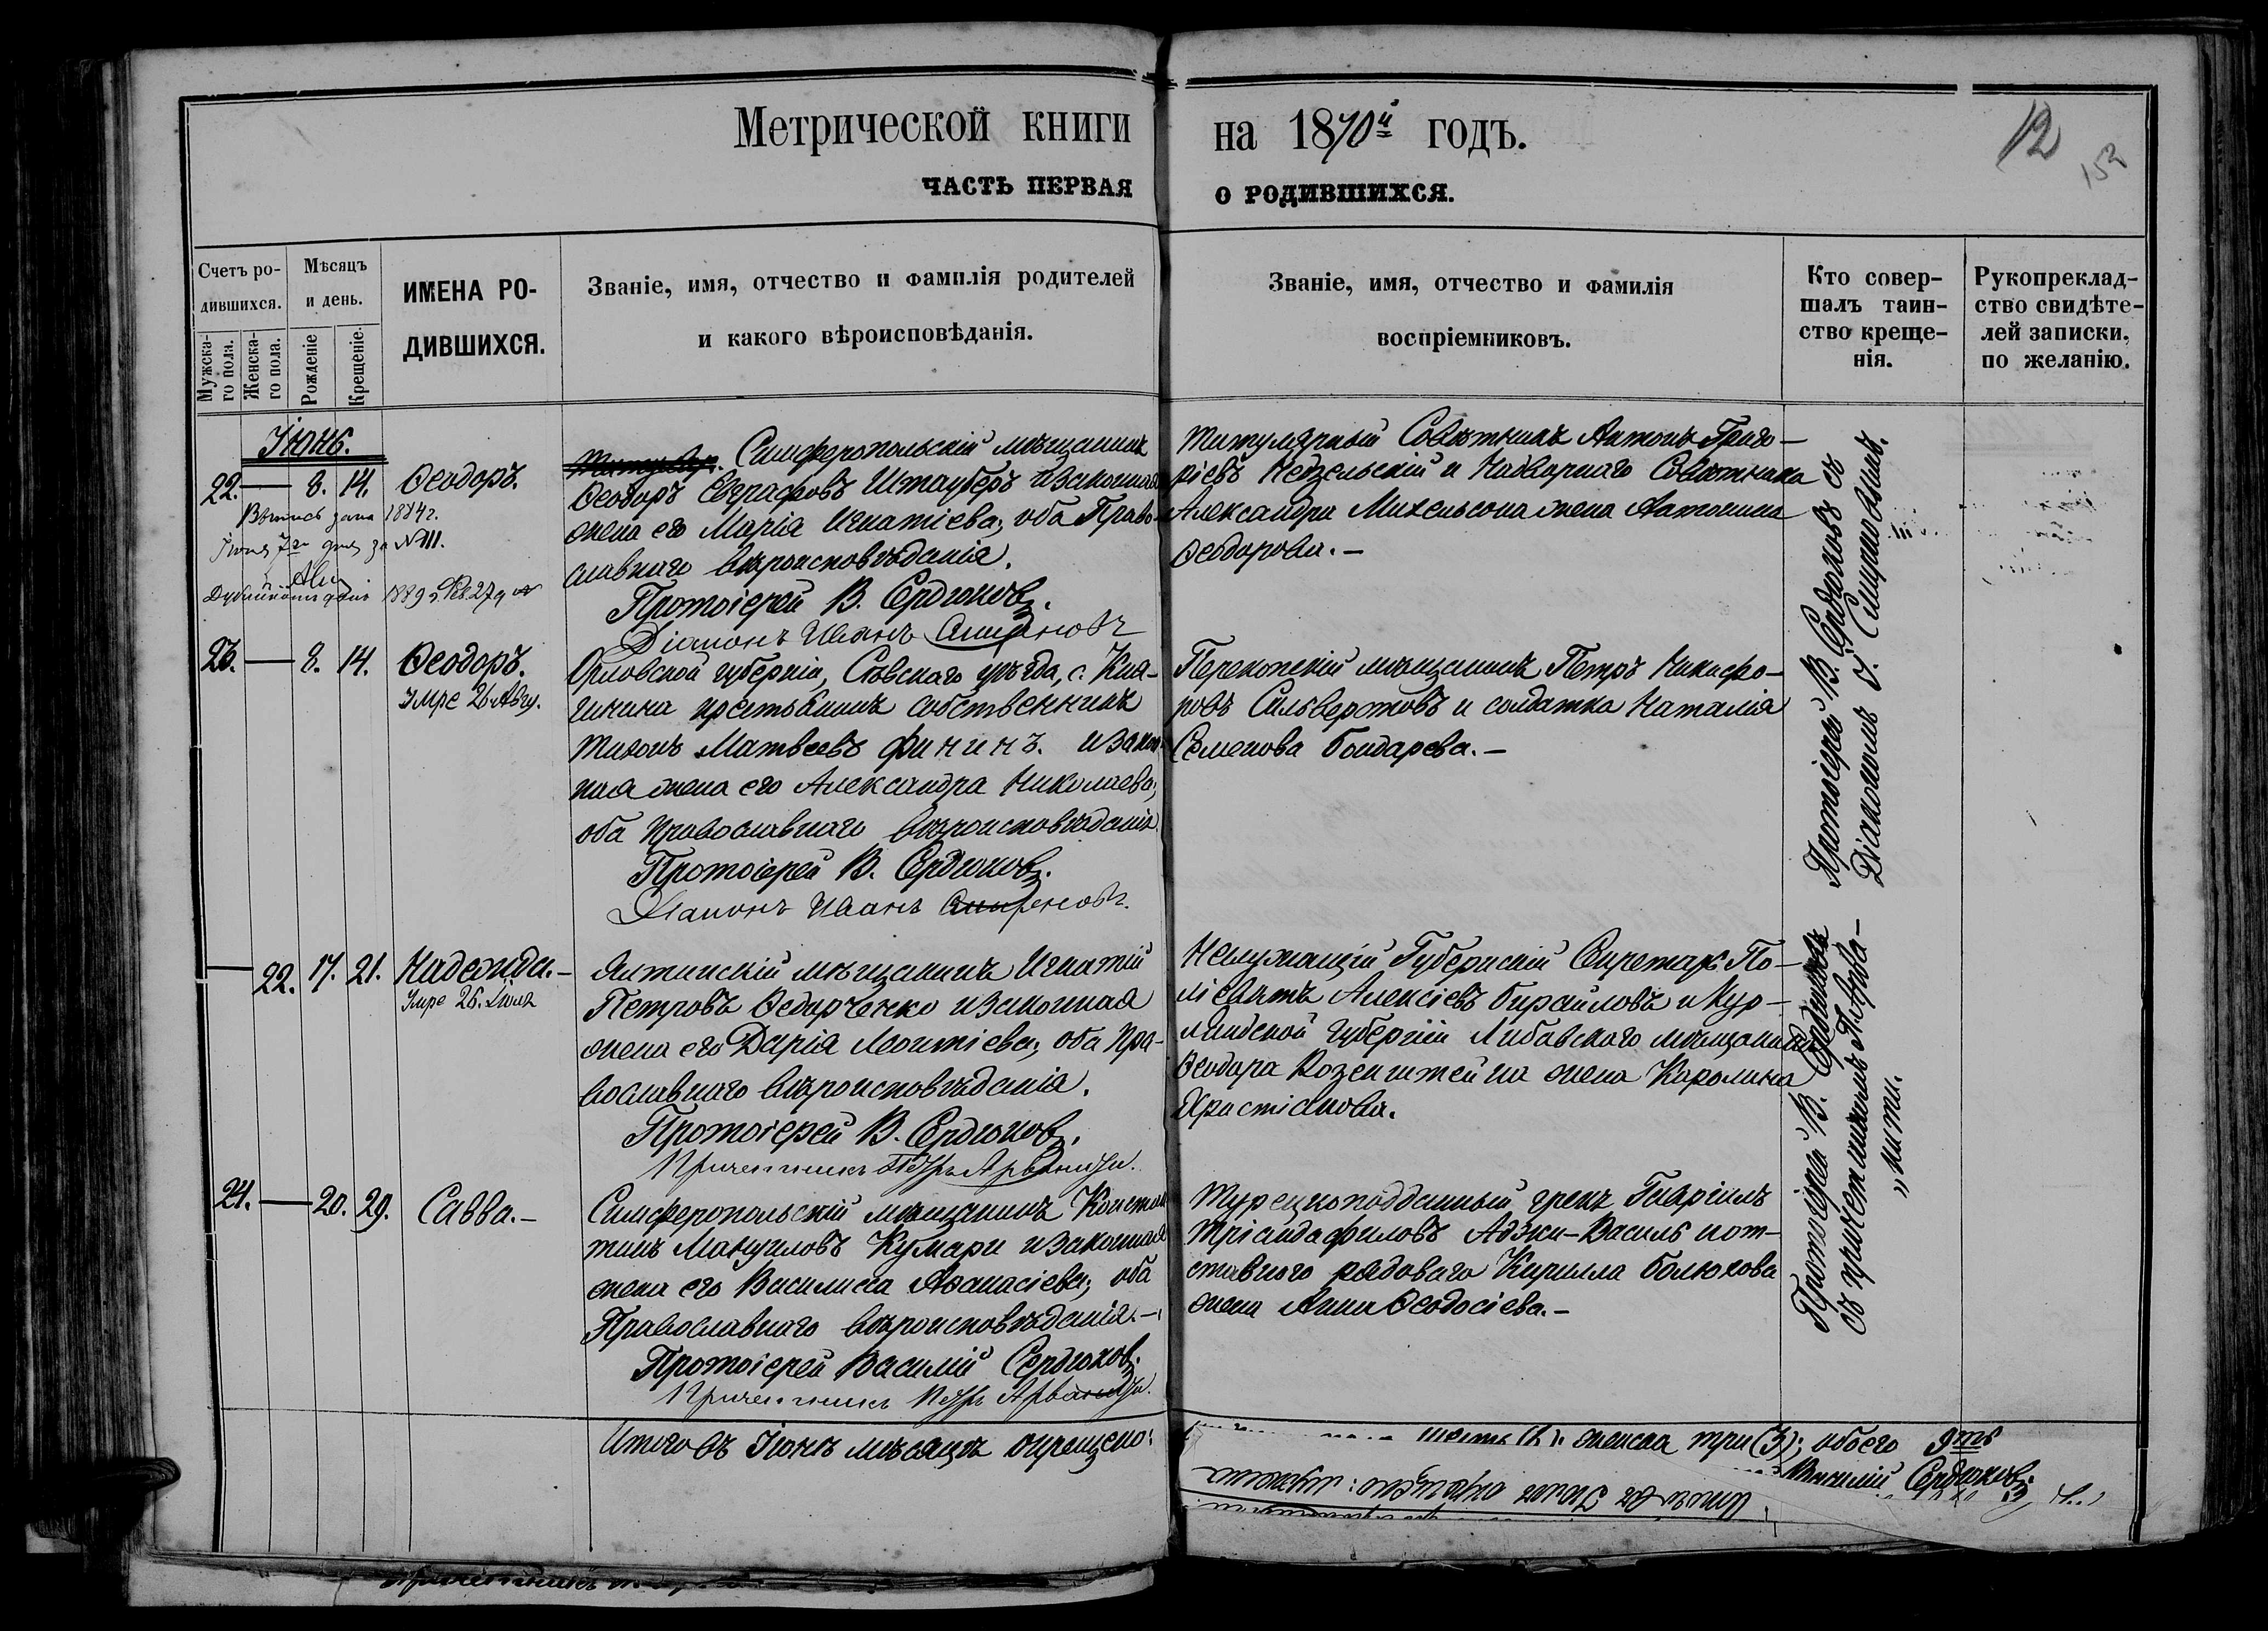 Метрической книги на 1870й годъ.
12
152
ЧАСТЬ ПЕРВАЯ О РОДИВШИХСЯ.
Счетъ ро-
дившихся.
Мужска-
го пола.
Женска-
го пола.
Мѣсяцъ
и день.
Рожденіе
Крещеніе.
ИМЕНА РО-
ДИВШИХСЯ.
Званіе, имя, отчество и фамилія родителей
и какого вѣроисповѣданія.
Званіе, имя, отчество и фамилія
воспріемниковъ.
Кто совер-
шалъ таин-
ство креще-
нія.
Рукопреклад-
ство свидѣте-
лей записки,
по желанію.
Іюнь.
22. — 8. 14. Ѳеодоръ.
1884 г.
Іюня 7го дня за №111.
1889
Симферопольскій мѣщанинъ
Ѳеодоръ Евграфовъ Штауберъ и законная
жена его Марія Игнатіева, оба Право-
славнаго вѣроисповѣданія.
Протоіерей В. Сердюковъ.
Діаконъ Иванъ Смирновъ
Титулярный Совѣтникъ Антонъ Григо-
ріевъ Недзельскій и Надворнаго Совѣтника
Александра Михельсона жена Антонина
Ѳеодорова. —
Протоіерей В. Сердюковъ съ
Діакономъ І. Смирновымъ.
23. — 8. 14. Ѳеодоръ.
Умре 26 Авгу.
Орловской губерніи, Сѣвскаго уѣзда, с. Кня-
гинина крестьянинъ собственникъ
Тихонъ Матвеевъ Фининъ. и закон-
ная жена его Александра Николаева,
оба православнаго вѣроисповѣданія
Протоіерей В. Сердюковъ.
Діаконъ Иванъ Смирновъ.
Перекопскій мѣщанинъ Петръ Никифо-
ровъ Сильверстовъ и солдатка Наталія
Семенова Бондарева. —
— 22. 17. 21. Надежда. —
Умре 26. Іюля
Ялтинскій мѣщанинъ Игнатій
Петровъ Ѳедорченко и законная
жена его Дарія Леонтіева, оба пра-
вославнаго вѣроисповѣданія.
Протоіерей В. Сердюковъ.
Причетникъ Петръ Арванити.
Неслужащій Губернскій Секретарь По-
ліевктъ Алексіевъ Бирайловъ и Кур-
ляндской губерніи Либавскаго мѣщанина
Ѳеодора Розенштейна жена Каролина
Христіанова.
Протоіерей В. Сердюковъ
съ причетникомъ П. Арва-
„нити.
24. — 20. 29. Савва. —
Симферопольскій мѣщанинъ Констан
тинъ Мануиловъ Кумари и законная
жена его Василисса Аѳанасіева, оба
Православнаго вѣроисповѣданія. —
Протоіерей Василій Сердюковъ.
Причетникъ Петръ Арванити.
Турецкоподданный грекъ Гавріилъ
Тріандафиловъ Аджи-Василь и от-
ставного рядоваго Кирилла Болюхова
жена Анна Ѳеодосіева. —
Итого въ Іюнѣ мѣсяцѣ окрещено:
женска три (3); обоего 9ть
Василій Сердюковъ
Итого въ Іюнѣ окрещено: